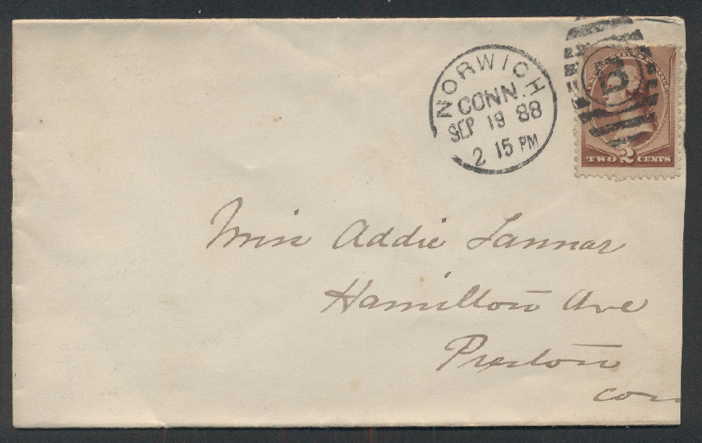 NORWICH
CONN.
SEP 19 88
2 15 PM
TWO 2 CENTS
Miss Addie Lannar
Hamilton Ave
Preston
con